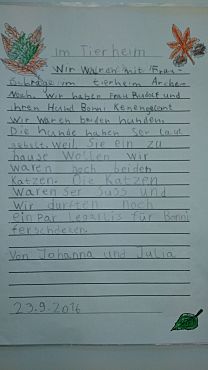 Im Tierheim
Wir Waren mit Frau
im tierheim Arche
Noah. Wir haben Frau Rudorf und
ihren Hund Bonni Kenengelant
Wir Waren beiden hunden.
Die hunde haben Ser laut
gebellt. Weil Sie ein zu
hause Wollen Wir
waren noch beiden
Katzen. Die Katzen
Waren Ser Süss und
Wir durften noch
ein Par Leqerlis für Bonni
ferschdeken.
Von Johanna und Julia
23.9.2016